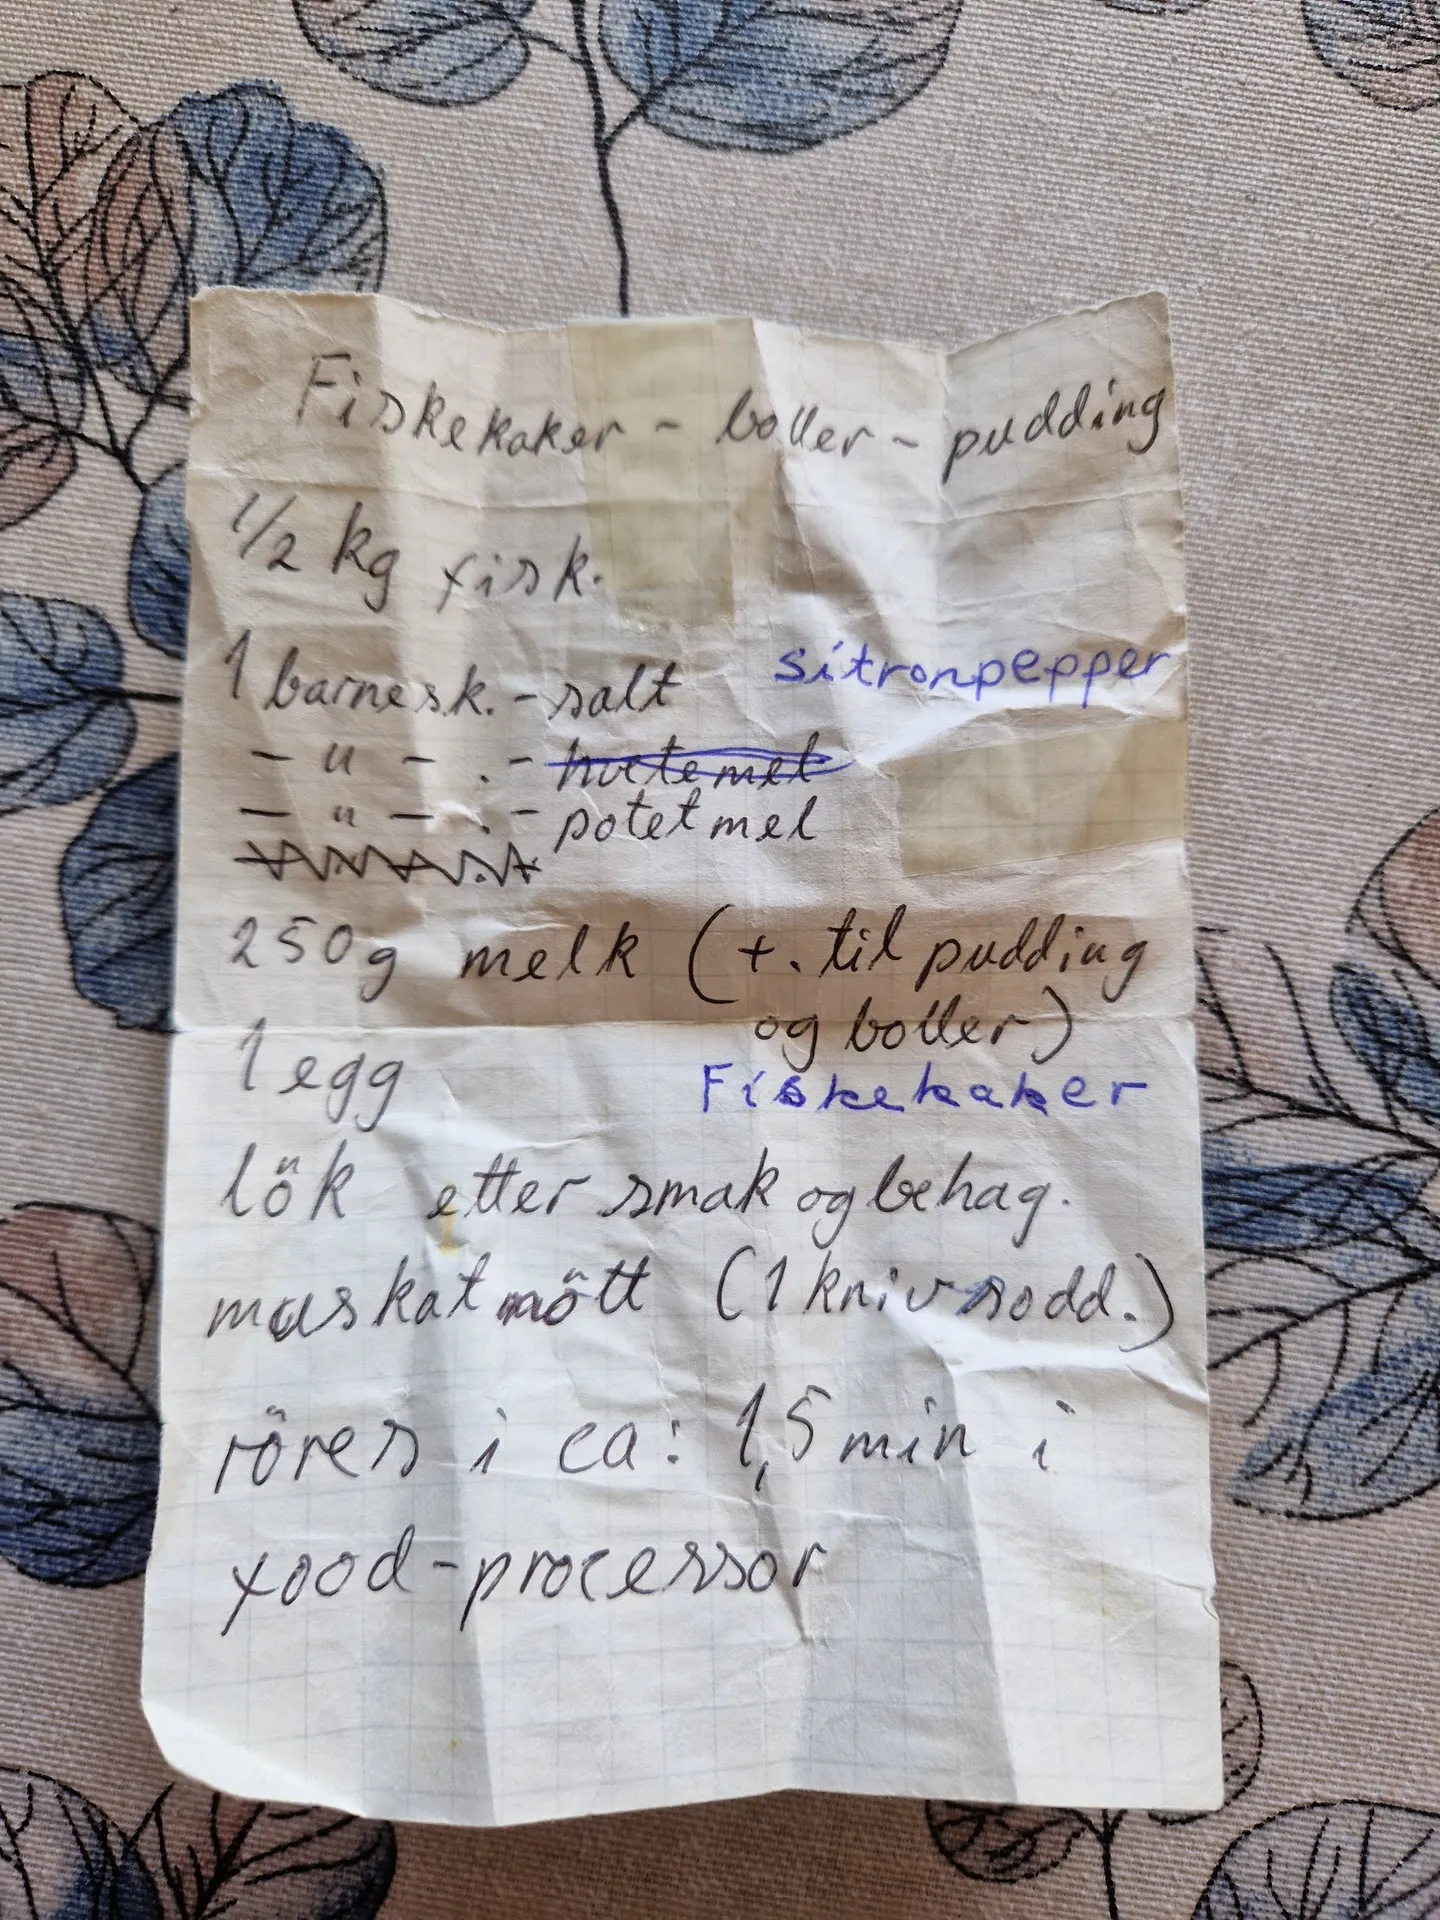 Fiskekaker - boller - pudding
1/2 kg fisk.
1 barnesk. - salt sitronpepper
- " - . - hvetemel
- " - . - potetmel
250g melk (+. til pudding
og boller)
1 egg Fiskekaker
lök etter smak og behag.
muskatnött (1 knivsodd.)
röres i ca: 1,5 min i
food-processor